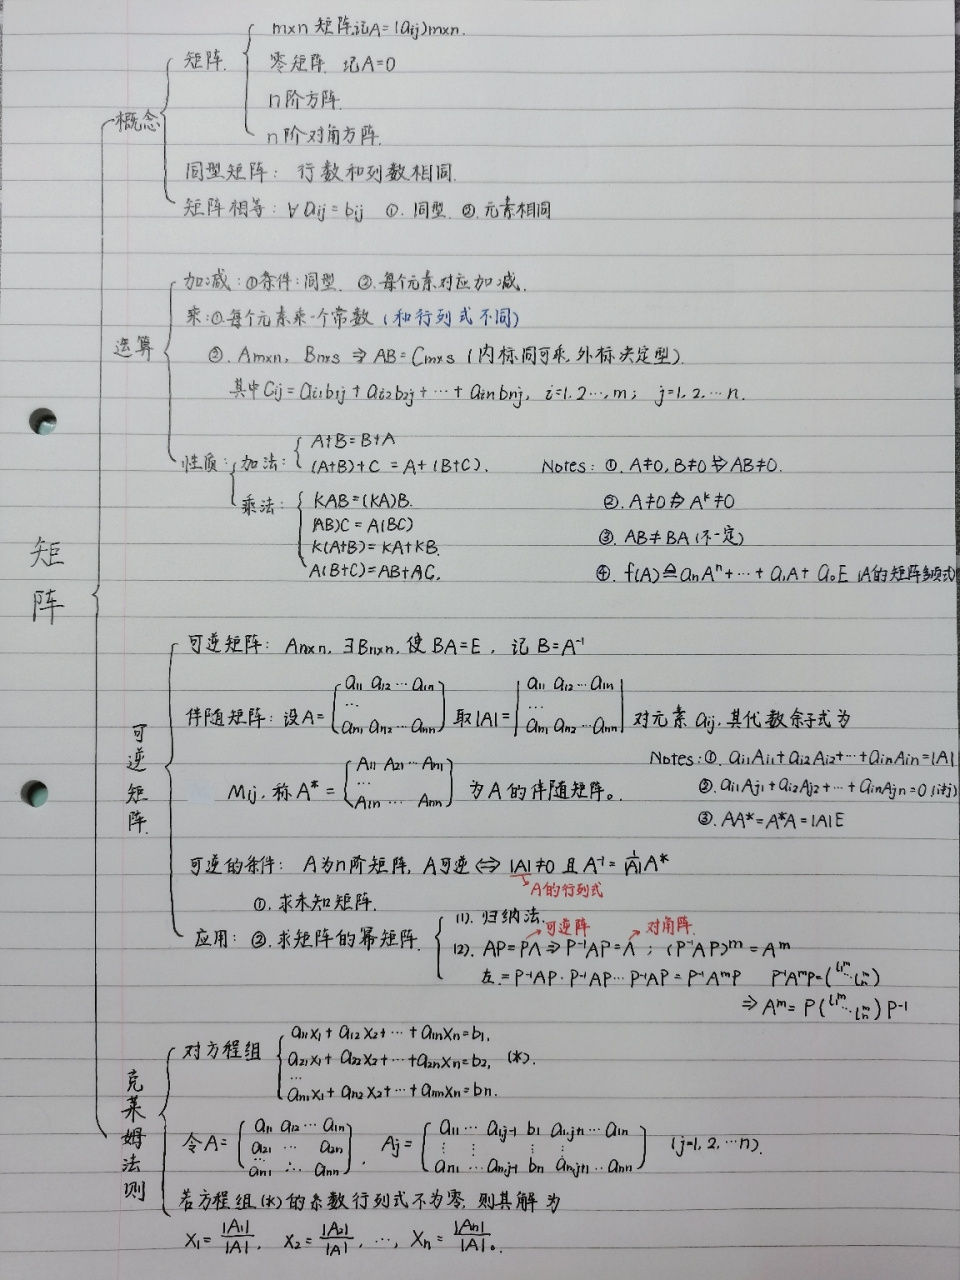 矩阵
概念
矩阵.
m×n 矩阵.记A=(aij)m×n.
零矩阵 记A=0
n阶方阵.
n阶对角方阵.
同型矩阵: 行数和列数相同.
矩阵相等: ∀aij=bij ①. 同型. ②. 元素相同
运算
加减: ①条件: 同型. ②. 每个元素对应加减.
乘: ①.每个元素乘一个常数 (和行列式不同)
②. Am×n, Bn×s ⇒ AB=Cm×s (内标同可乘,外标决定型).
其中Cij=ai1b1j+ai2b2j+⋯+ainbnj, i=1,2⋯,m; j=1,2,⋯n.
性质: 加法:
A+B=B+A
(A+B)+C=A+(B+C).
乘法:
KAB=(KA)B.
(AB)C=A(BC)
K(A+B)=KA+KB.
A(B+C)=AB+AC.
Notes: ①. A≠0, B≠0 ⇏ AB≠0.
②. A≠0 ⇏ A^k≠0
③. AB≠BA (不一定)
④. f(A)≜anA^n+⋯+a1A+a0E (A的矩阵多项式
可逆矩阵.
可逆矩阵: An×n, ∃Bn×n, 使BA=E, 记B=A^-1
伴随矩阵: 设A=(a11 a12⋯a1n ⋯ an1 an2⋯ann) 取|A|=|a11 a12⋯a1n ⋯ an1 an2⋯ann| 对元素aij,其代数余子式为
Mij, 称A*=(A11 A21⋯An1 ⋯ A1n ⋯ Ann) 为A的伴随矩阵。
Notes: ①. ai1Ai1+ai2Ai2+⋯+ainAin=|A|
②. ai1Aj1+ai2Aj2+⋯+ainAjn=0 (i≠j)
③. AA*=A*A=|A|E
可逆的条件: A为n阶矩阵, A可逆⇔|A|≠0 且A^-1=1/|A| A*
A的行列式
应用:
①. 求未知矩阵.
②. 求矩阵的幂矩阵.
(1). 归纳法.
可逆阵 对角阵.
(2). AP=PΛ⇒P^-1AP=Λ; (P^-1AP)^m=Λ^m
左=P^-1AP·P^-1AP⋯P^-1AP=P^-1A^mP P^-1A^mP=(l1^m ⋱ ln^m)
⇒A^m=P(l1^m ⋱ ln^m)P^-1
克莱姆法则
对方程组
a11x1+a12x2+⋯+a1nxn=b1,
a21x1+a22x2+⋯+a2nxn=b2, (*).
⋯
an1x1+an2x2+⋯+annxn=bn.
令A=(a11 a12⋯a1n a21 ⋯ a2n ⋯ an1 ⋱ ann), Aj=(a11⋯a1j-1 b1 a1,j+1⋯a1n ⋮ ⋮ ⋮ ⋮ an1⋯an,j-1 bn an,j+1⋯ann) (j=1,2,⋯n).
若方程组(*)的系数行列式不为零, 则其解为
X1=|A1|/|A|, X2=|A2|/|A|, ⋯, Xn=|An|/|A|。